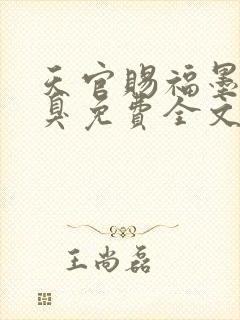 天官赐福墨
臭免费全文
王尚磊